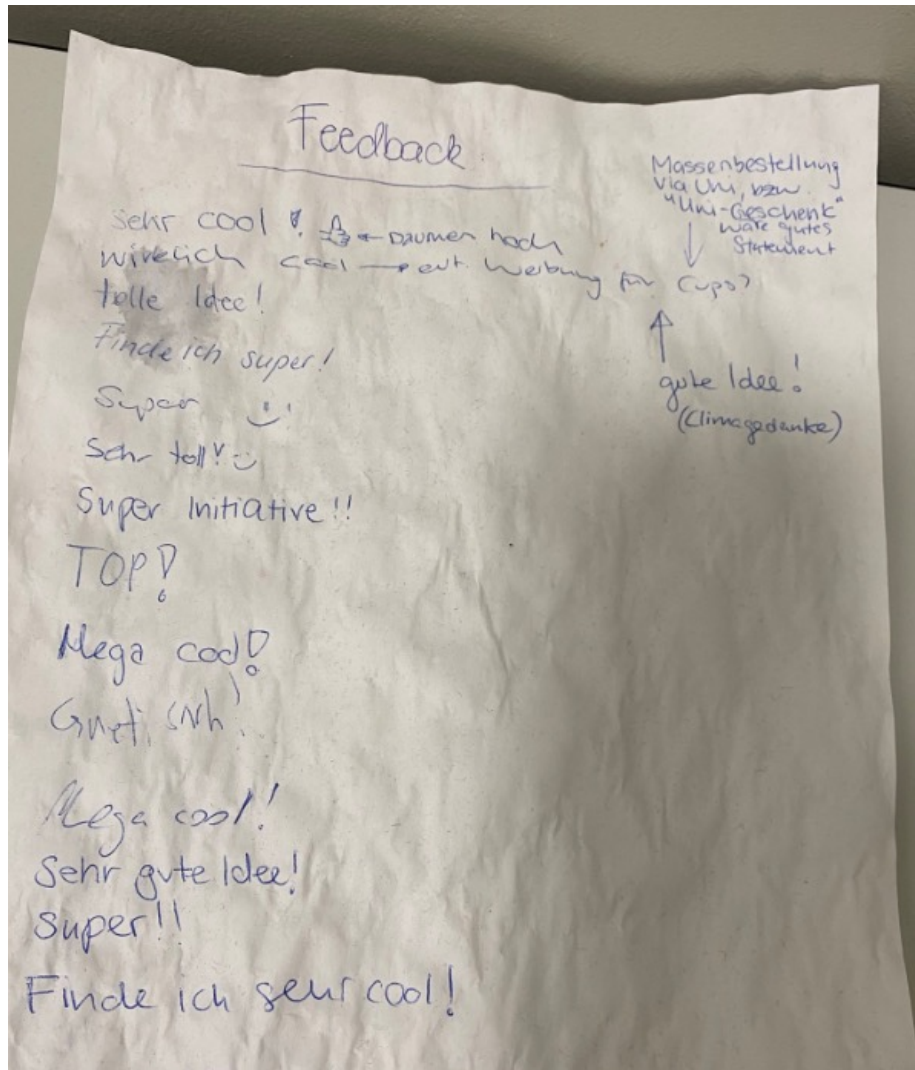 Feedback
Massenbestellung
via Uni, bzw.
"Uni-Geschenk"
wäre gutes
Statement
Sehr cool! ← Daumen hoch
wirklich cool → evt. Werbung für Cups?
tolle Idee!
Finde ich super!
gute Idee!
(Climagedanke)
Super
Sehr toll!
Super Initiative!!
TOP!
Mega cool!
Gueti
Mega cool!
Sehr gute Idee!
Super!!
Finde ich sehr cool!